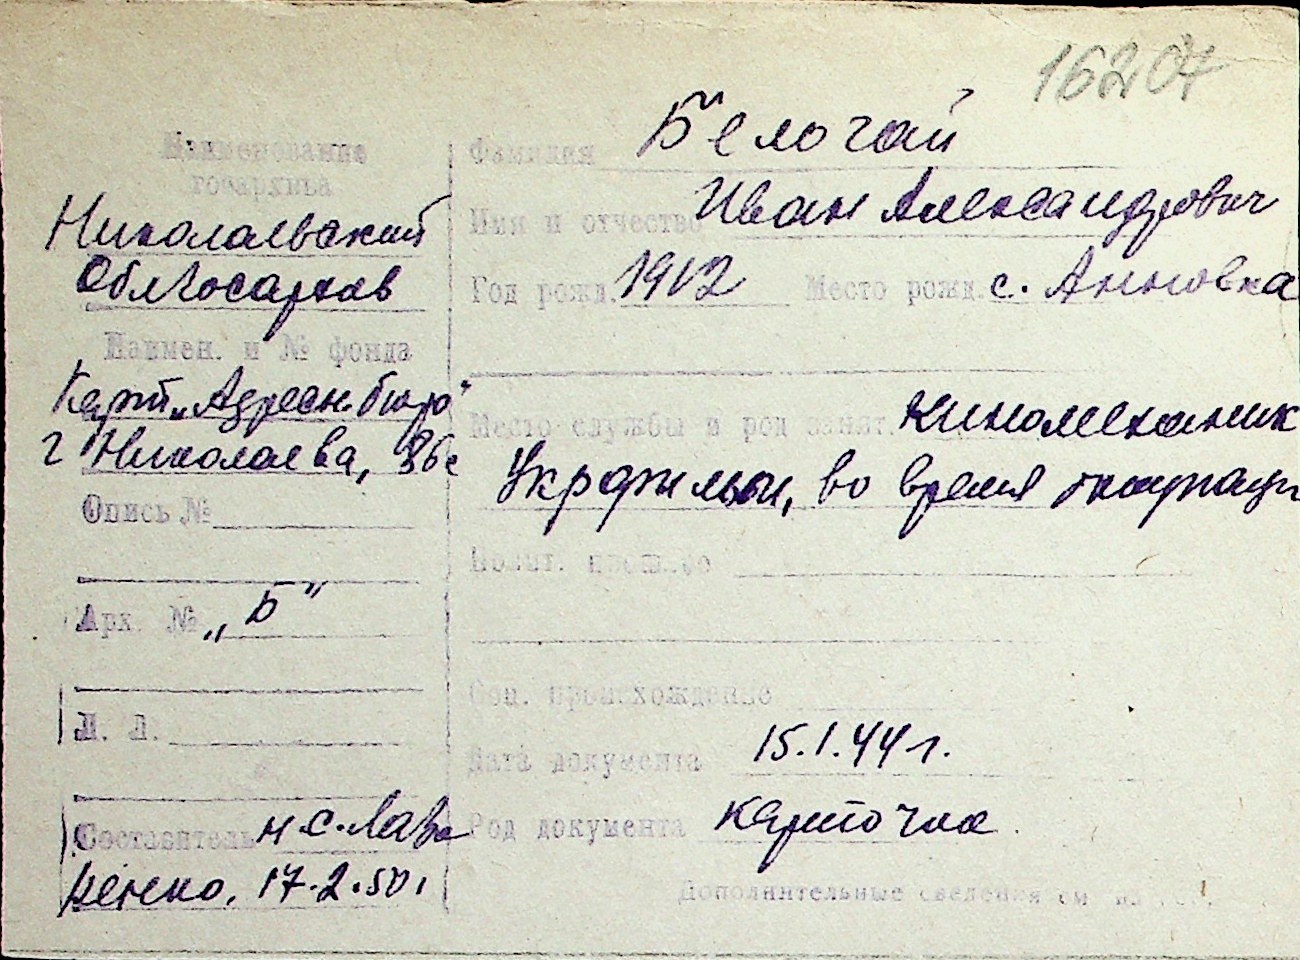 16207
Наименование
госархива
Николаевский
Облгосархив
Наимен. и № фонда
Карт. „Адресн. бюро"
г Николаева,
Опись №
Арх. № „Б"
Л. Л.
Составитель н.с. Лав
ренко. 17.2.50.
Фамилия Белогай
Имя и отчество Иван Александрович
Год рожд. 1912 Место рожд. с. Анновка
Место службы и род занят. киномеханик
Укрфильм, во время оккупации
Полит. прошлое
Соц. происхождение
Дата документа 15.1.44 г.
Род документа карточка.
Дополнительные сведения см на об.